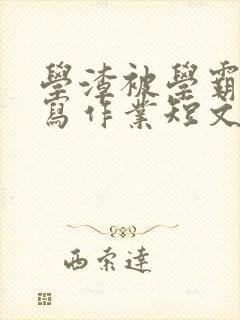 學渣被學霸
寫作業短文
西索達